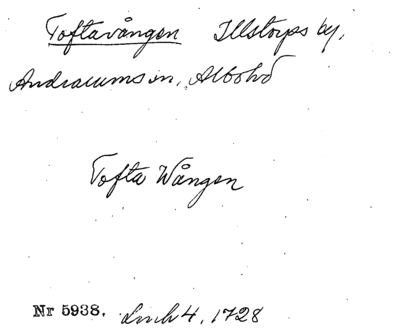 Toftavången Illstorps by,
Andrarums sn, Albo hd
Tofta Wången
Nr 5938. Lmh 4, 1728